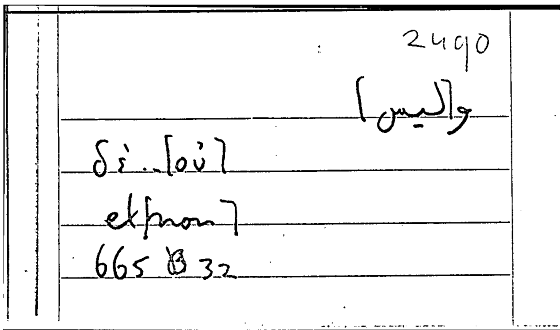 2490
و[ليس]
δὲ..[οὐ]
et[non]
665 B 32